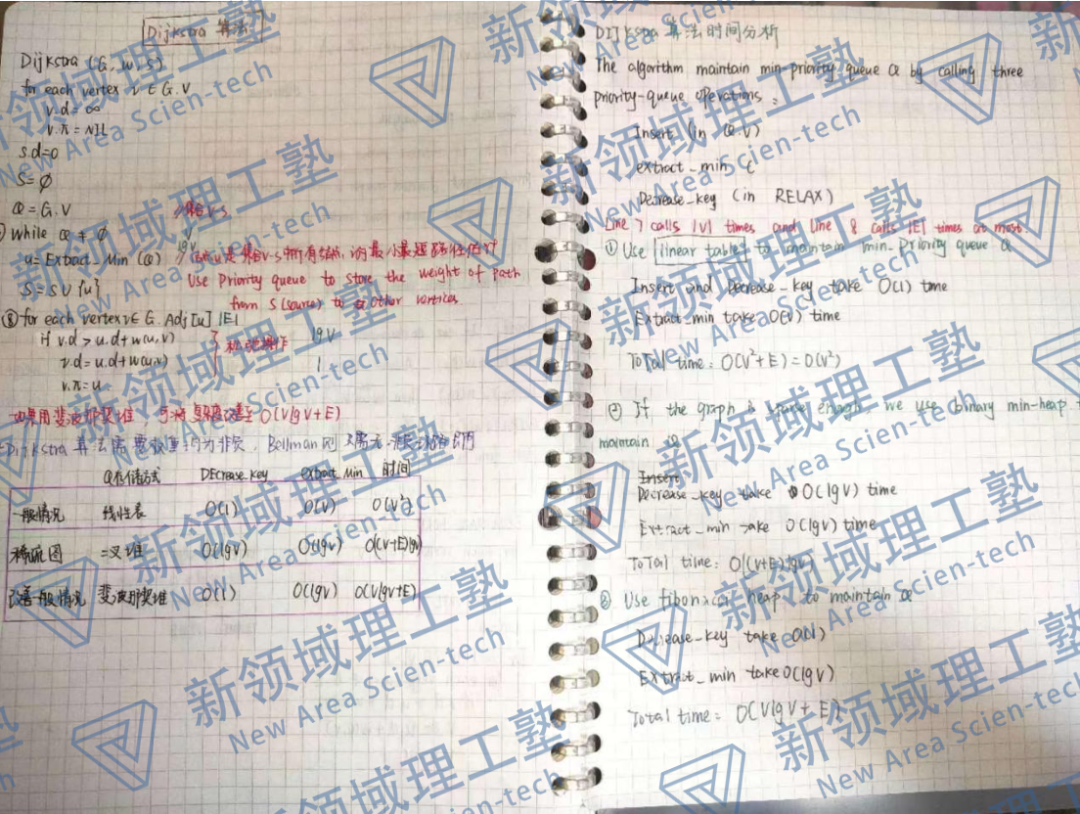 Dijkstra 算法
Dijkstra (G, w, s)
for each vertex v ∈ G.V
v.d = ∞
v.π = NIL
s.d=0
S = ∅
Q = G.V
集合V-S
while Q ≠ ∅
u = Extract_Min (Q) //
S = S ∪ {u}
Use Priority queue to store the weight of path
from S (source) to other vertices
⑧ for each vertex v ∈ G.Adj[u] |E|
if v.d > u.d + w(u,v)
v.d = u.d + w(u,v)
v.π = u
松弛操作
如果用斐波那契堆，可将复杂度改善至 O(VlgV+E)
Dijkstra 算法需要权重均为非负，Bellman 则
Q存储方式 DEcrease_key extract_Min 时间
一般情况 线性表 O(1) O(V) O(V²)
稀疏图 二叉堆 O(lgV) O(lgV) O((V+E)lgV)
改善一般情况 斐波那契堆 O(1) O(lgV) O(VlgV+E)
DIJKstra 算法时间分析
The algorithm maintain min-priority queue Q by calling three
priority-queue operations :
Insert (in Q.V)
extract_min
Decrease_key (in RELAX)
Line 7 calls |V| times and line 8 calls |E| times at most.
① Use linear table to maintain min-Priority queue Q
Insert and Decrease-key take O(1) time
Extract_min take O(V) time
ToTal time : O(V²+E) = O(V²)
② If the graph is sparse enough we use binary min-heap to
maintain Q
Insert
Decrease_key take O(lgV) time
Extract_min take O(lgV) time
ToTal time : O((V+E)lgV)
③ Use fibonacci heap to maintain Q
Decrease_key take O(1)
Extract_min take O(lgV)
Total time : O(VlgV+E)
新领域理工塾
New Area Scien-tech